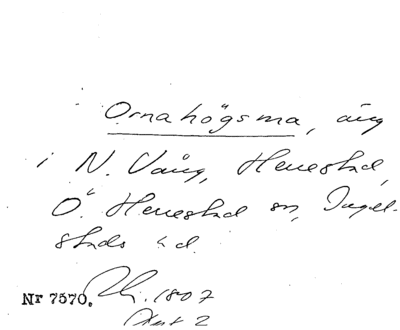 Ornahögsma, äng
i N. Vång, Herrestad,
Ö. Herrestad sn, Ingel-
stads hd.
Nr 7570. 1807
2